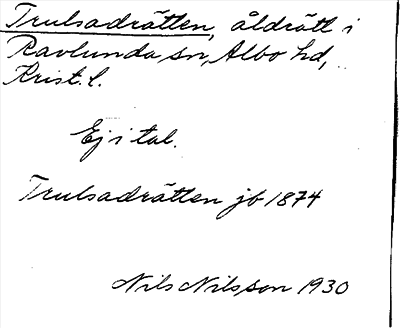 Trulsadrätten, åldrätt i
Ravlunda sn, Albo hd,
Krist. l.
Ej i tal.
Trulsadrätten jb 1874
Nils Nilsson 1930